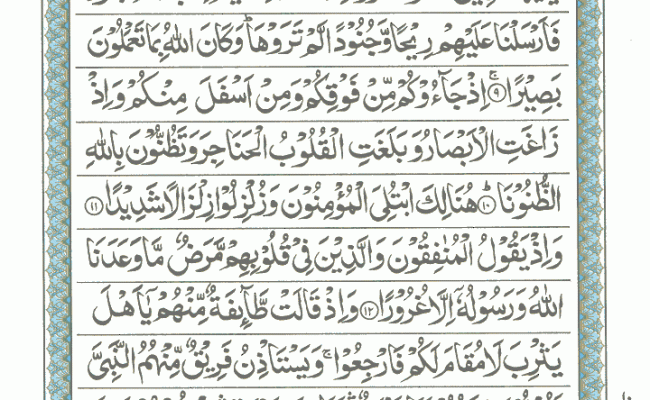 فَاَرْسَلْنَا عَلَيْهِمْ رِيْحًا وَّجُنُوْدًا لَّمْ تَرَوْهَا ؕ وَكَانَ اللّٰهُ بِمَا تَعْمَلُوْنَ
بَصِيْرًا ۚ ﴿۹﴾ اِذْ جَآءُوْكُمْ مِّنْ فَوْقِكُمْ وَمِنْ اَسْفَلَ مِنْكُمْ وَاِذْ
زَاغَتِ الْاَبْصَارُ وَبَلَغَتِ الْقُلُوْبُ الْحَنَاجِرَ وَتَظُنُّوْنَ بِاللّٰهِ
الظُّنُوْنَا ؕ ﴿۱۰﴾ هُنَالِكَ ابْتُلِىَ الْمُؤْمِنُوْنَ وَزُلْزِلُوْا زِلْزَالًا شَدِيْدًا ﴿۱۱﴾
وَاِذْ يَقُوْلُ الْمُنٰفِقُوْنَ وَالَّذِيْنَ فِىْ قُلُوْبِهِمْ مَّرَضٌ مَّا وَعَدَنَا
اللّٰهُ وَرَسُوْلُهٗۤ اِلَّا غُرُوْرًا ﴿۱۲﴾ وَاِذْ قَالَتْ طَّآئِفَةٌ مِّنْهُمْ يٰۤاَهْلَ
يَثْرِبَ لَا مُقَامَ لَكُمْ فَارْجِعُوْا ۚ وَيَسْتَاْذِنُ فَرِيْقٌ مِّنْهُمُ النَّبِىَّ